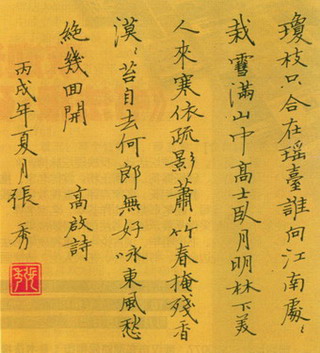 瓊枝只合在瑶臺誰向江南處〻
栽雪滿山中高士臥月明林下美
人來寒依疏影蕭〻竹春掩殘香
漠〻苔自去何郎無好咏東風愁
絶幾回開　高啟詩
丙戌年夏月張秀